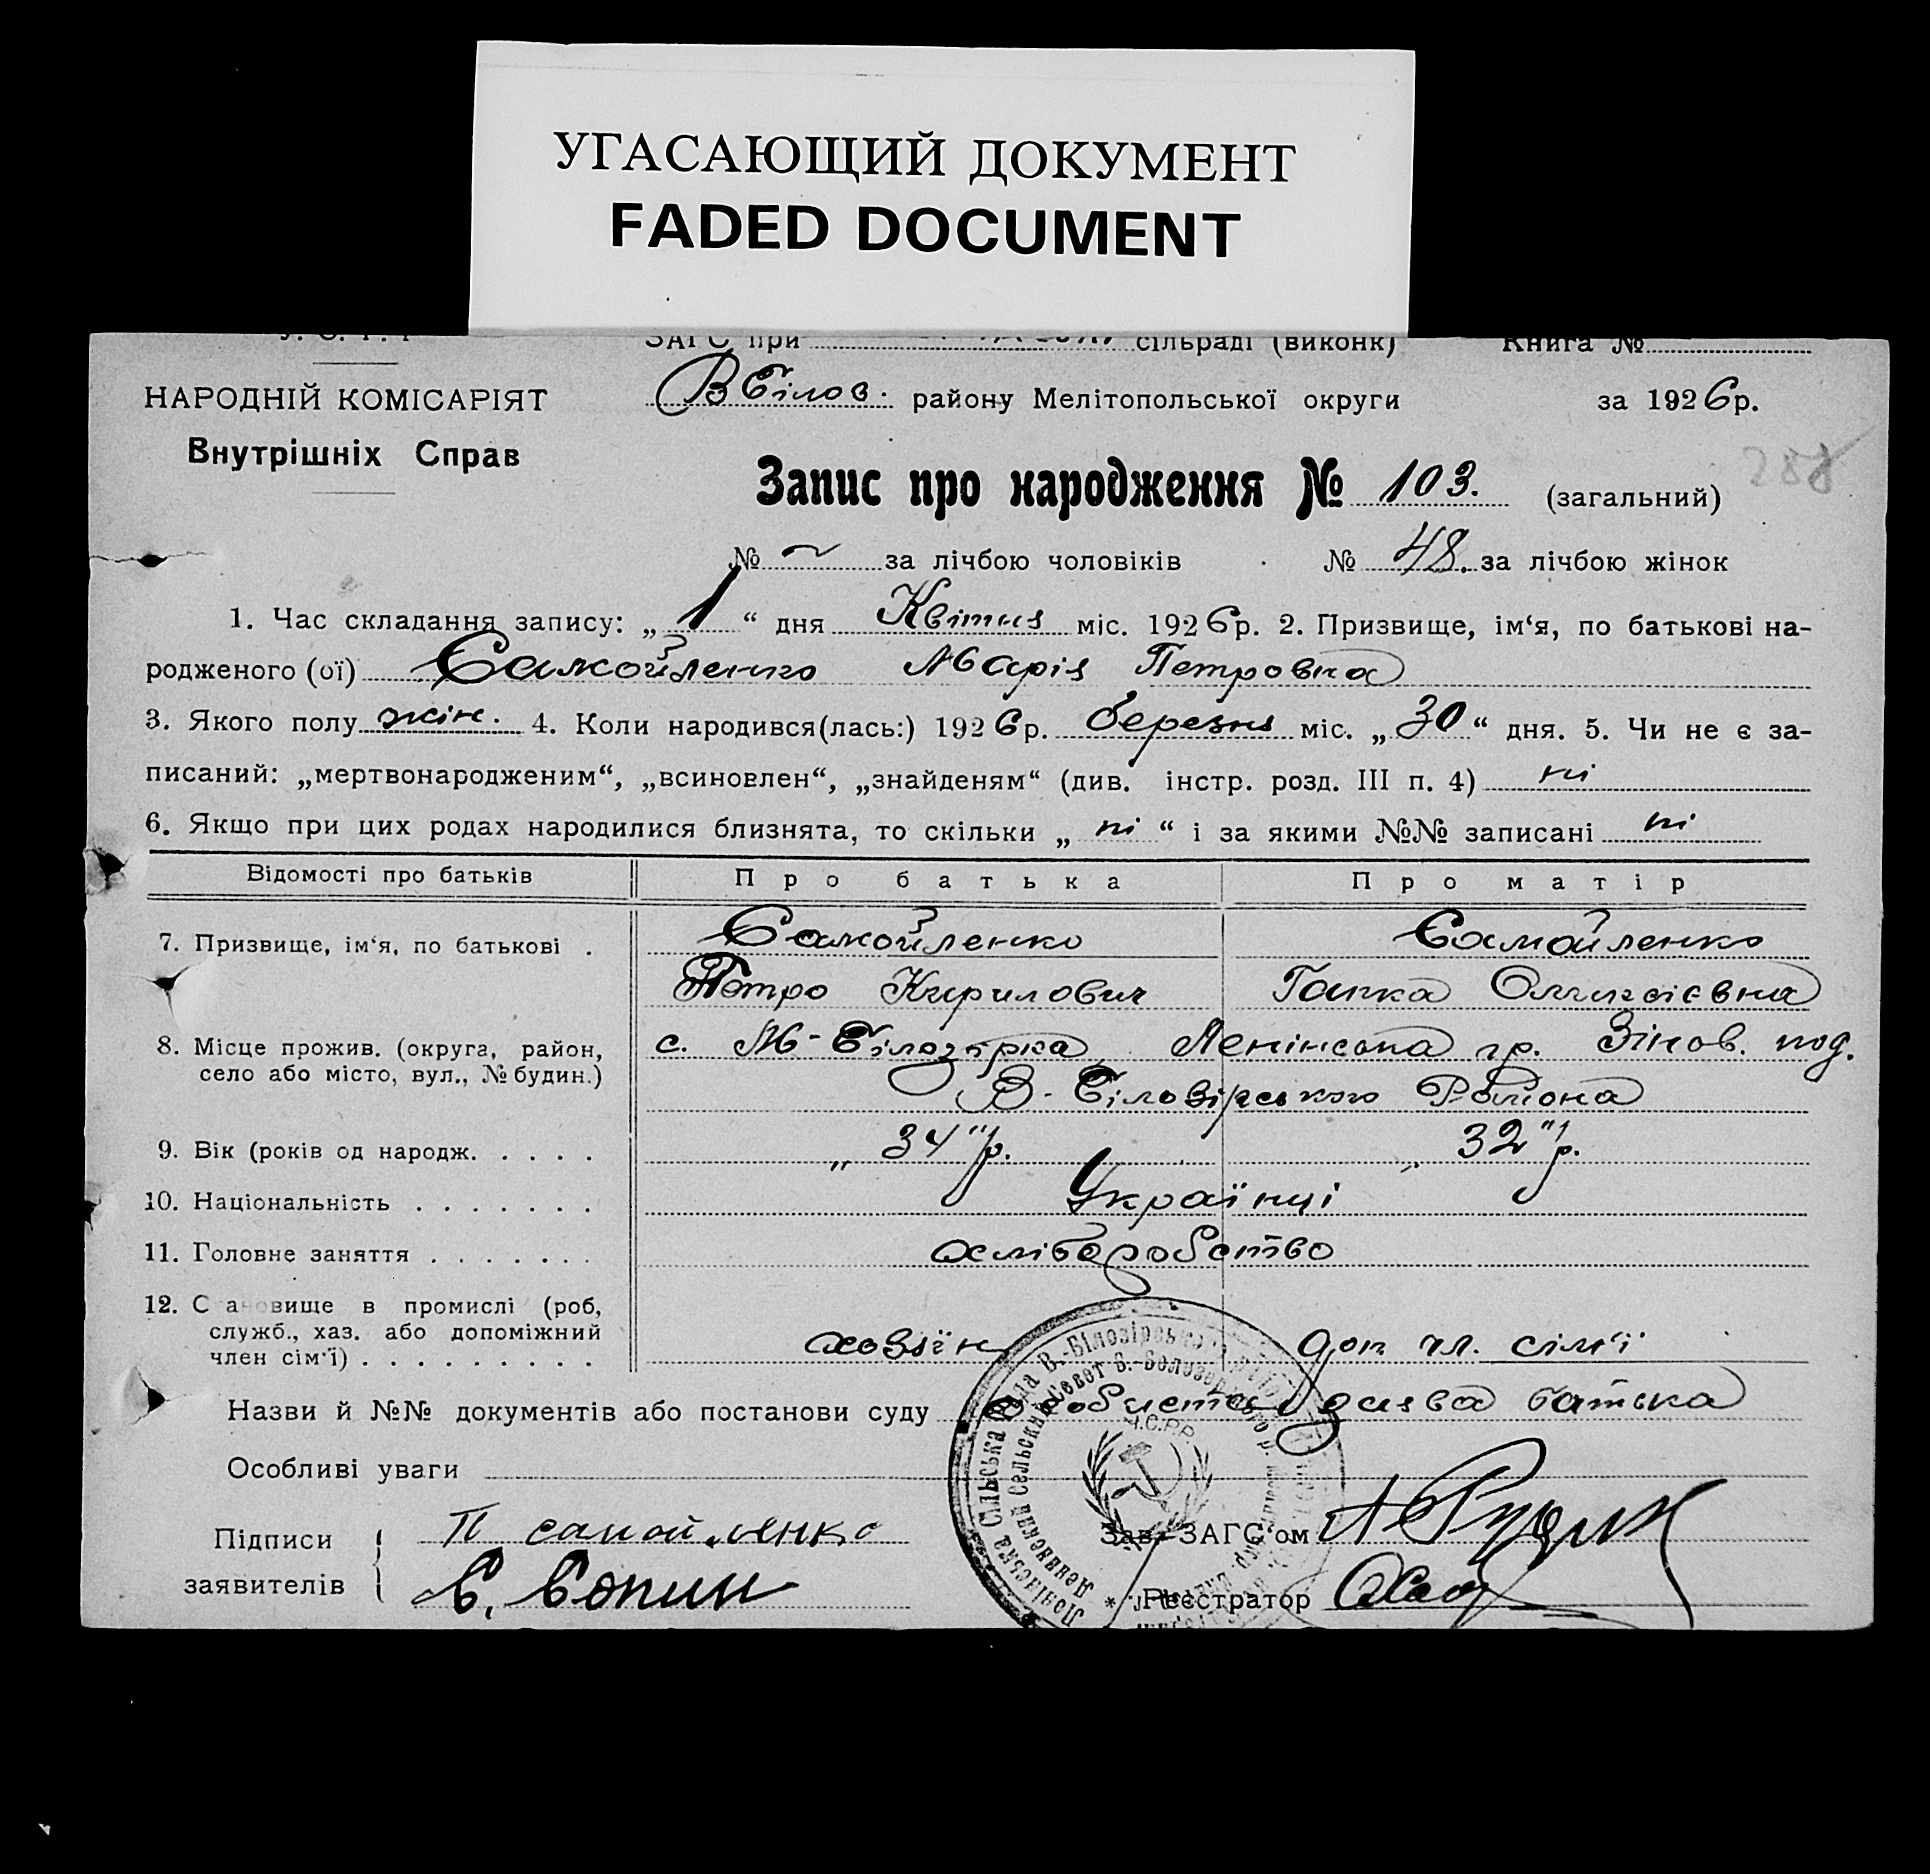 УГАСАЮЩИЙ ДОКУМЕНТ
FADED DOCUMENT
У. С. Р. Р
ЗАГС при сільраді (виконк) Книга №
НАРОДНІЙ КОМІСАРІЯТ
В Білов. району Мелітопольської округи за 1926р.
Внутрішніх Справ
Запис про народження № 103. (загальний)
№ ~ за лічбою чоловіків № 48. за лічбою жінок
1. Час складання запису: „1“ дня Квітня міс. 1926р. 2. Призвище, ім‘я, по батькові на-
родженого (ої) Самойленко Марія Петровна
3. Якого полу жін. 4. Коли народився(лась:) 1926р. березня міс. „30“ дня. 5. Чи не є за-
писаний: „мертвонародженим“, „всиновлен“, „знайденям“ (див. інстр. розд. III п. 4) ні
6. Якщо при цих родах народилися близнята, то скільки „ні“ і за якими №№ записані ні
Відомості про батьків Про батька Про матір
7. Призвище, ім‘я, по батькові . Самойленко Самойленко
Петро Кирилович Ганка Олексієвна
8. Місце прожив. (округа, район, с. М-Білозірка Ленінська гр. Зінов. под.
село або місто, вул., № будин.)
В-Білозірського Района
9. Вік (років од народж. . . . . „34“ р. „32“ р.
10. Національність . . . . . . . Українці
11. Головне заняття . . . . . . . хліборобство
12. Становище в промислі (роб,
служб., хаз. або допоміжний хазяїн доп чл. сім‘ї
член сім‘ї) . . . . . . . . . .
Назви й №№ документів або постанови суду заява батька
Особливі уваги
Підписи П самойленко Зав. ЗАГС‘ом
заявителів Реєстратор
Ленінська Сільська Рада В.-Білозірського
Ленинский Сельский Совет В.-Белозерского р.
У.С.Р.Р.